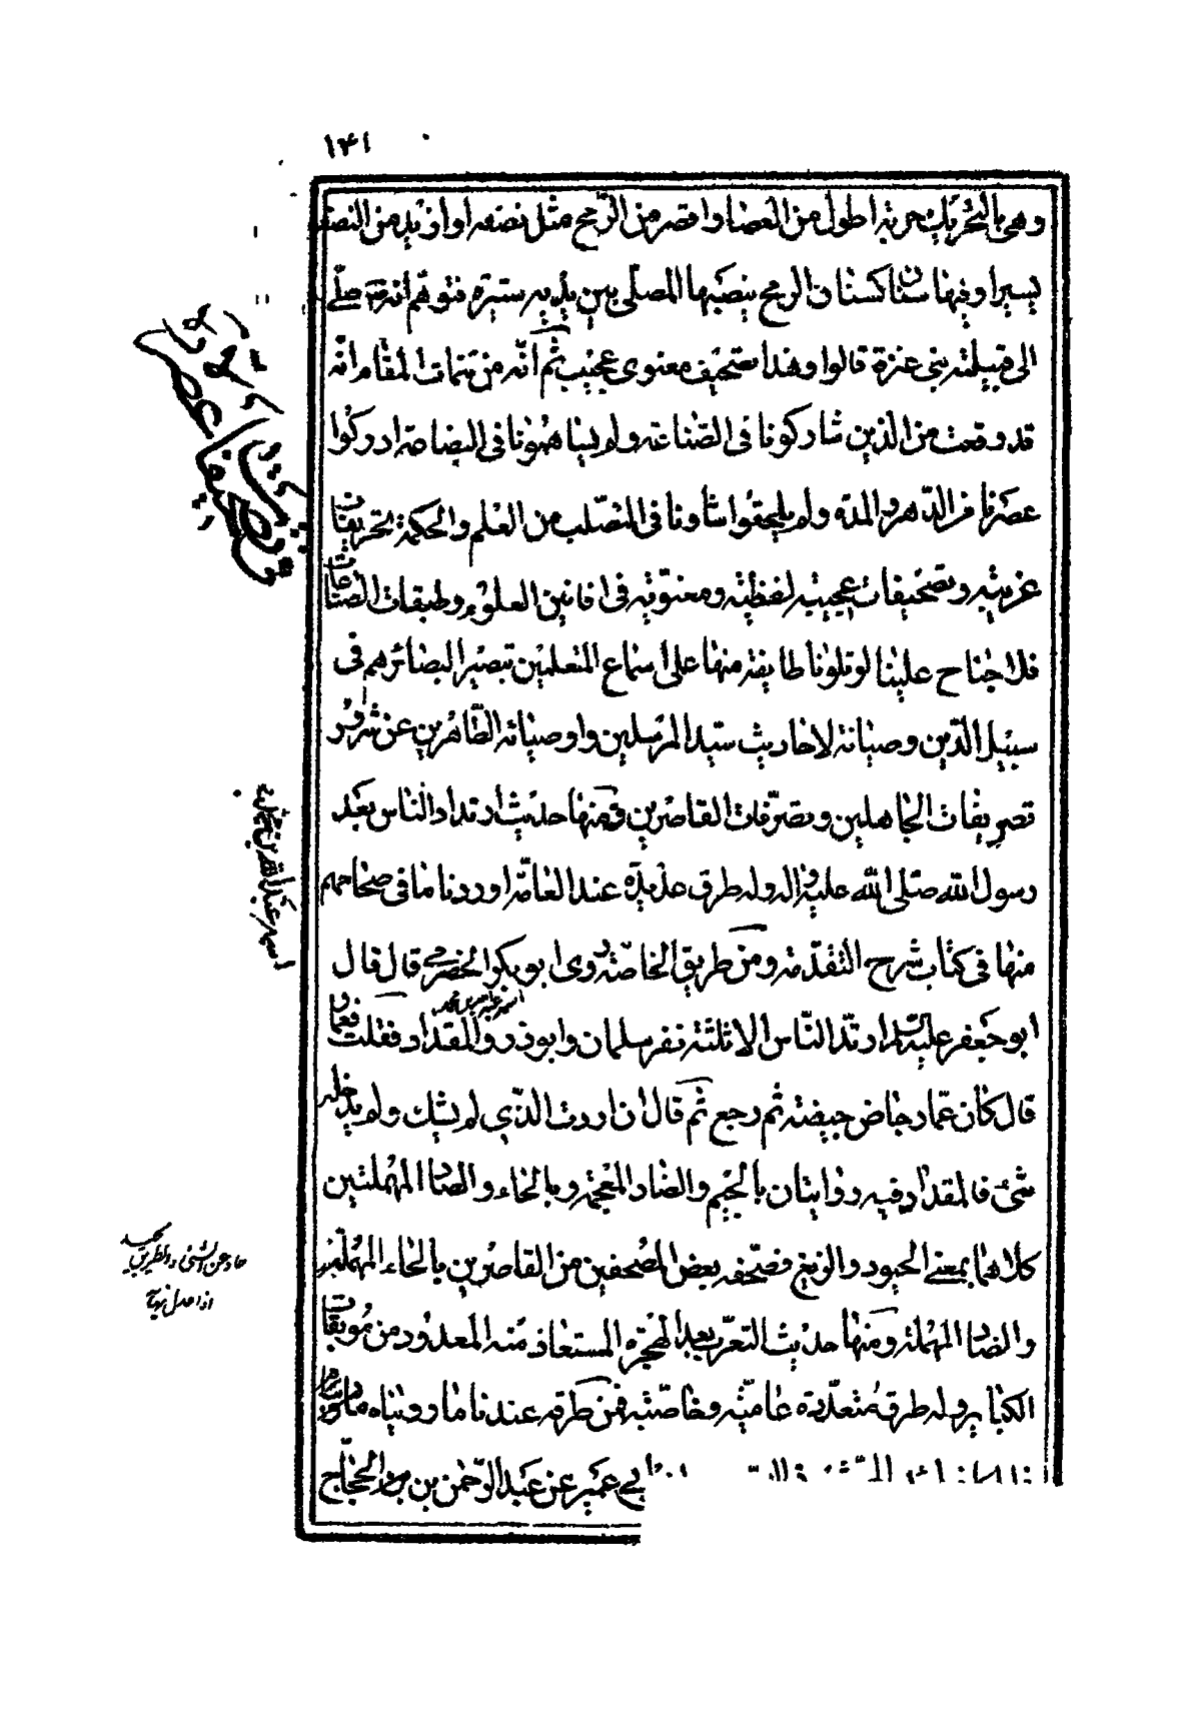 ١٤١
وهى بالتحريك حربة اطول من العصا واقصر من الرمح مثل نصفه او ازيد من النصف
يسيرا وفيها سنان كسنان الرمح ينصبها المصلى بين يديه سترة فتوهم انه ص صلى
الى قبيلته بنى عنزة قالوا وهذا تصحيف معنوى عجيب ثم انه من تتمات المقام انه
قد وقعت من الذين شاركونا فى الصناعة ولم يساهمونا فى البضاعة ادركوا
عصرنا من الدهر والمدة ولم يلحقوا شأونا فى التصلب من العلم والحكمة تحريفات
غريبة وتصحيفات عجيبة لفظية ومعنوية فى افانين العلوم وطبقات الصناعات
فلا جناح علينا لو تلونا طايفة منها على اسماع المتعلمين تبصيرا لبصائرهم فى
سبيل الدين وصيانة لاحاديث سيد المرسلين واوصيائه الطاهرين عن شرور
تصريفات الجاهلين وتصرفات القاصرين فمنها حديث ارتداد الناس بعد
رسول الله صلى الله عليه واله وله طرق عديدة عند العامة اوردنا ما فى صحاحهم
منها فى كتاب شرح التقدمة ومن طريق الخاصة روى ابو بكر الحضرمى قال قال
ابو جعفر عليه السلم ارتد الناس الا ثلثة نفر سلمان وابوذر والمقداد فقلت فعمار
قال كان عمار جاض جيضة ثم رجع ثم قال ان اردت الذى لم يشك ولم يدخله
شئ فالمقداد فيه روايتان بالجيم والضاد المعجمة وبالحاء والصاد المهملتين
كلاهما بمعنى الحيود والزيغ فصحفه بعض المصحفين من القاصرين بالحاء المهملة
والضاد المهملة ومنها حديث التعرب بعد الهجرة المستعاذ منه المعدود من موبقات
الكبائر وله طرق متعددة عامية وخاصية فمن طرقه عندنا ما رويناه
بى عمير عن عبد الرحمن بن الحجاج
تصحيفا عصره
اسمه عبد الله بن محمد
حاد عن الشئ والطريق يحيد
اذا عدل